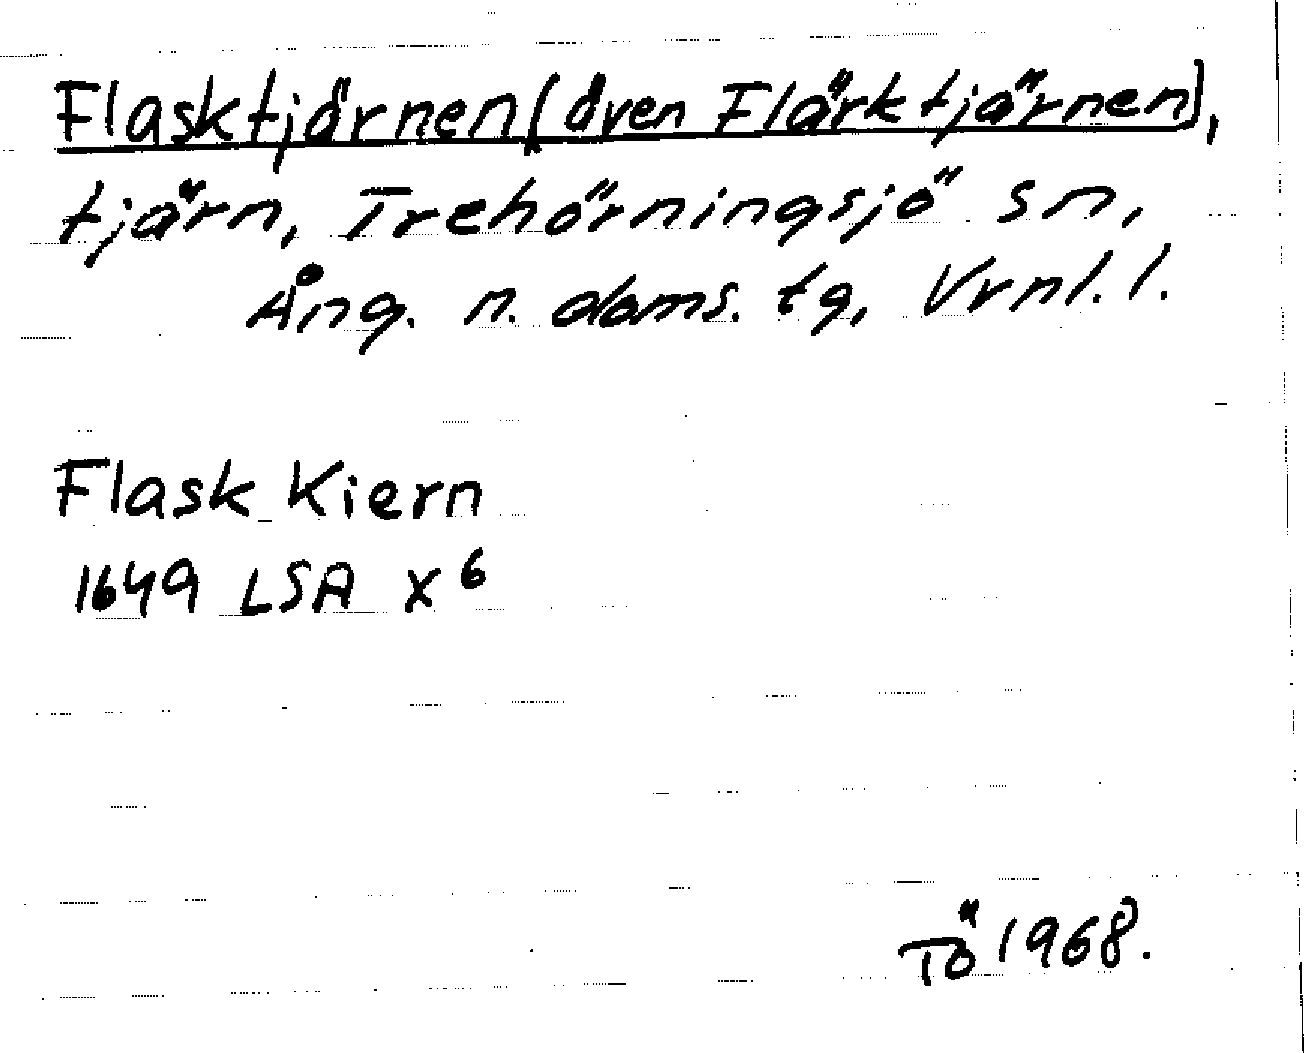 Flasktjärnen (även Flärktjärnen),
tjärn, Trehörningsjö sn,
Ång. n. doms. tg, Vrnl. l.
Flask Kiern
1649 LSA X 6
TÖ 1968.